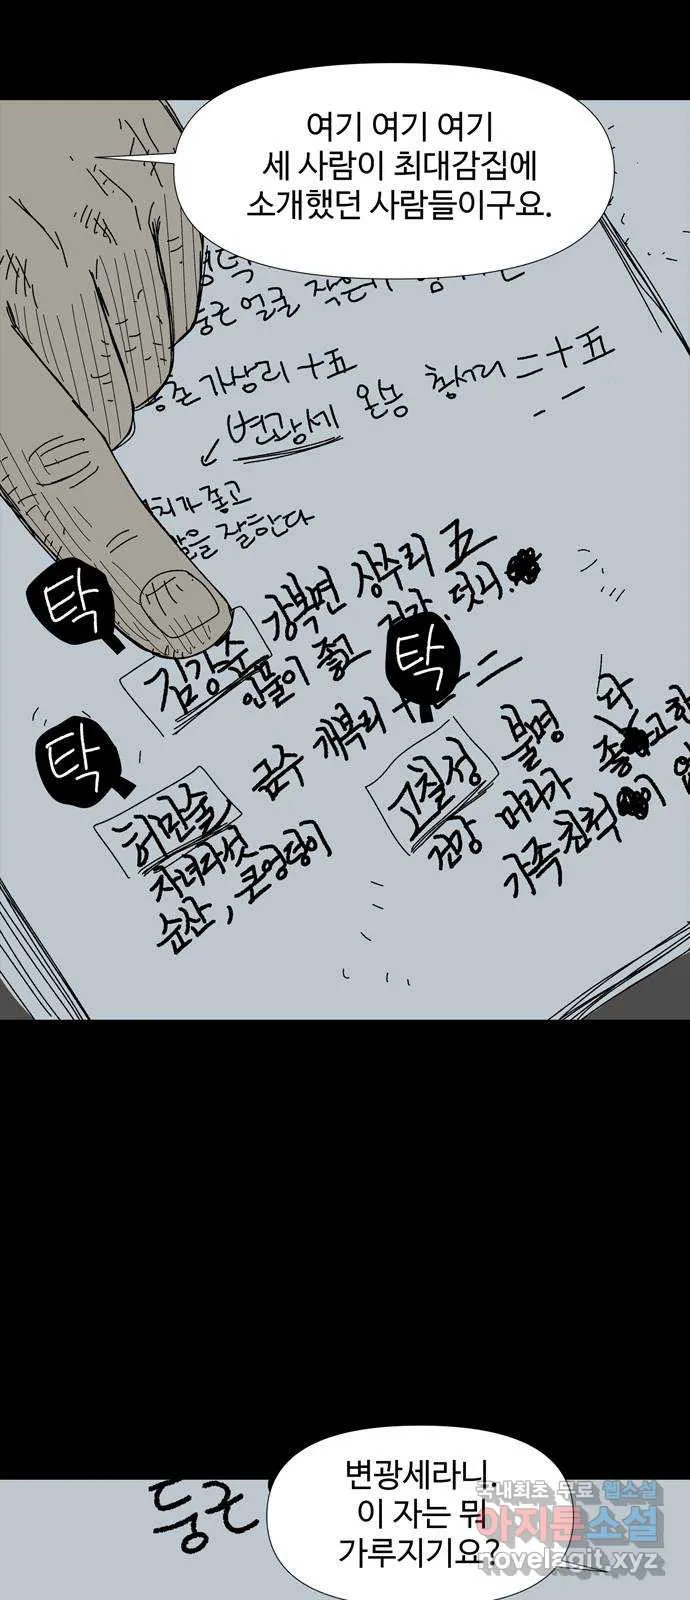 여기 여기 여기
세 사람이 최대감집에
소개했던 사람들이구요.
둥근 얼굴 작은
가상리 十五
변광세 온승 총서리 二十五
치가 좋고
말을 잘한다
탁
김강수 강북면 상수리 五
인물이 좋고 건강. 덧니.
탁
탁
허만술 금수 개복리
자녀다섯
순산, 큰엉덩이
고칠성 불명
건강 머리가 좋고
가족친척이
둥근
변광세라니.
이 자는 뭐
가루지기요?
국내최초 무료 웹소설
아지툰소설
novelagit.xyz